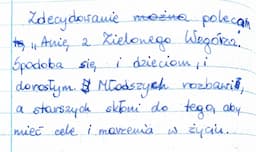 Zdecydowanie polecam
"Anię z Zielonego Wzgórza.
Spodoba się i dzieciom, i
dorosłym. Młodszych rozbawi,
a starszych skłoni do tego, aby
mieć cele i marzenia w życiu.